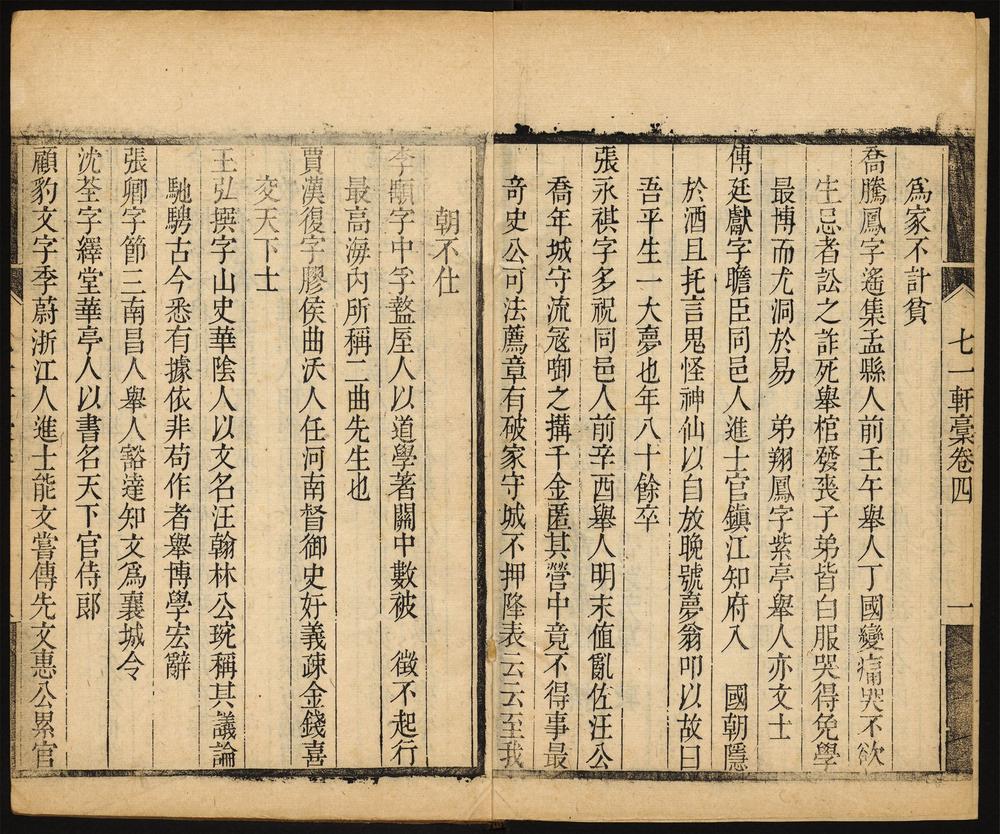 七一軒稾卷四
一
爲家不計貧
喬騰鳳字遙集孟縣人前壬午舉人丁國變痛哭不欲
生忌者訟之詐死舉棺發喪子弟皆白服哭得免學
最博而尤洞於易　弟翔鳳字紫亭舉人亦文士
傅廷獻字瞻臣同邑人進士官鎮江知府入　國朝隱
於酒且托言鬼怪神仙以自放晚號夢翁叩以故曰
吾平生一大夢也年八十餘卒
張永祺字多祝同邑人前辛酉舉人明末值亂佐汪公
喬年城守流寇啣之搆千金匿其營中竟不得事最
奇史公可法薦章有破家守城不押隆表云云至我
朝不仕
李顒字中孚盩厔人以道學著關中數被　徵不起行
最高海內所稱二曲先生也
賈漢復字膠侯曲沃人任河南督御史好義疎金錢喜
交天下士
王弘撰字山史華陰人以文名汪翰林公琬稱其議論
馳騁古今悉有據依非苟作者舉博學宏辭
張卿字節三南昌人舉人豁達知文爲襄城令
沈荃字繹堂華亭人以書名天下官侍郎
顧豹文字季蔚浙江人進士能文嘗傳先文惠公累官